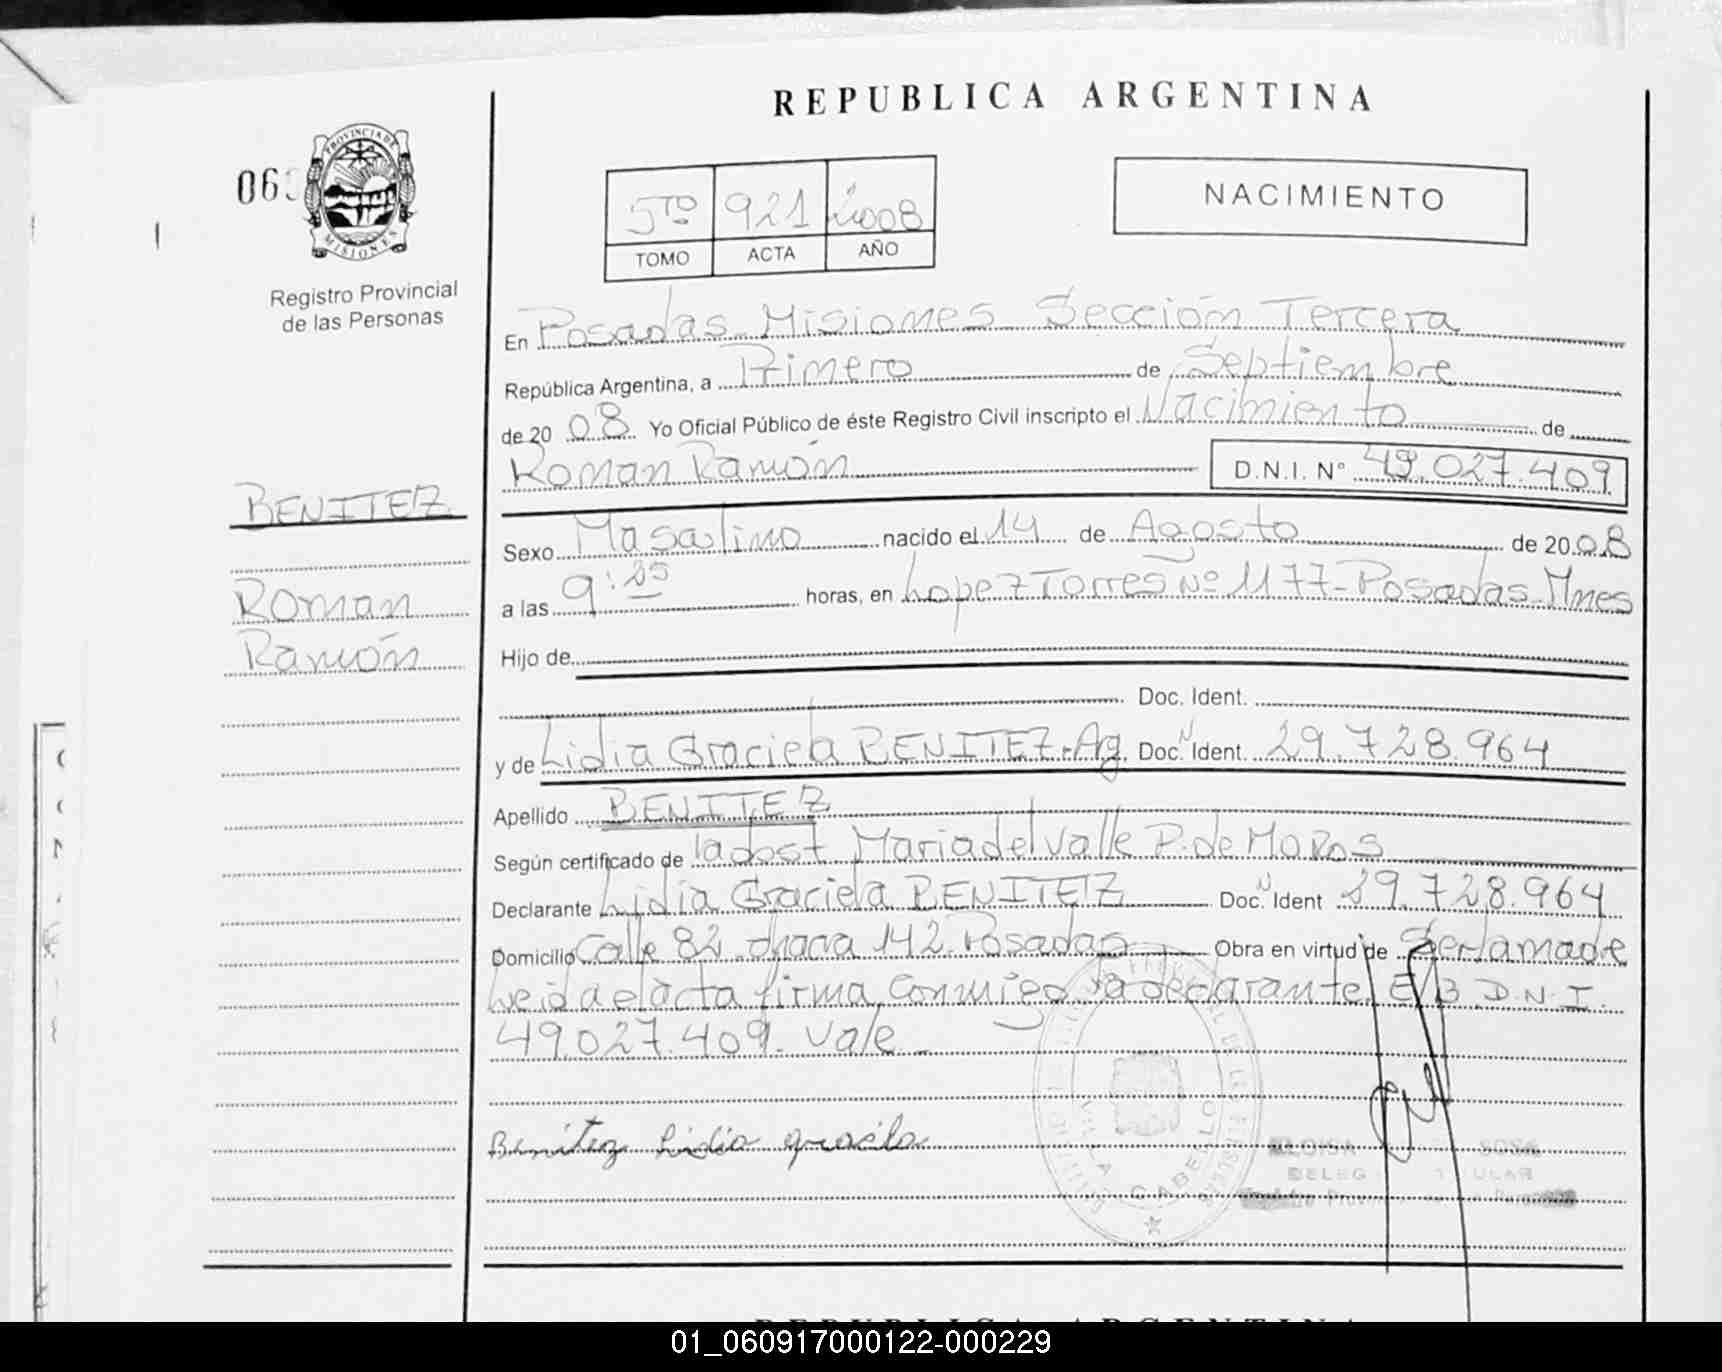 REPUBLICA ARGENTINA
06
PROVINCIA DE
MISIONES
Registro Provincial
de las Personas
5TO 921 2008
TOMO ACTA AÑO
NACIMIENTO
En Posadas Misiones Sección Tercera
República Argentina, a Primero de Septiembre
de 2008 Yo Oficial Público de éste Registro Civil inscripto el Nacimiento de
Roman Ramón D.N.I. N° 49.027.409
BENITEZ
Roman
Ramón
Sexo Masculino nacido el 14 de Agosto de 2008
a las 9:25 horas, en Lopez Torres Nº 1177-Posadas-Mnes
Hijo de
Doc. Ident.
y de Lidia Graciela BENITEZ-Ag. Doc. N Ident. 29.728.964
Apellido BENITEZ
Según certificado de la obst Maria del Valle P. de MOROS
Declarante Lidia Graciela BENITEZ Doc. N Ident 29.728.964
Domicilio Calle 82 chacra 142 Posadas Obra en virtud de Ser la madre
Leida el acta firma conmigo la declarante E/B D.N.I.
49.027.409. Vale
Benitez Lidia graciela
VILLA CABELLO
SOSA
REPUBLICA ARGENTINA
01_060917000122-000229